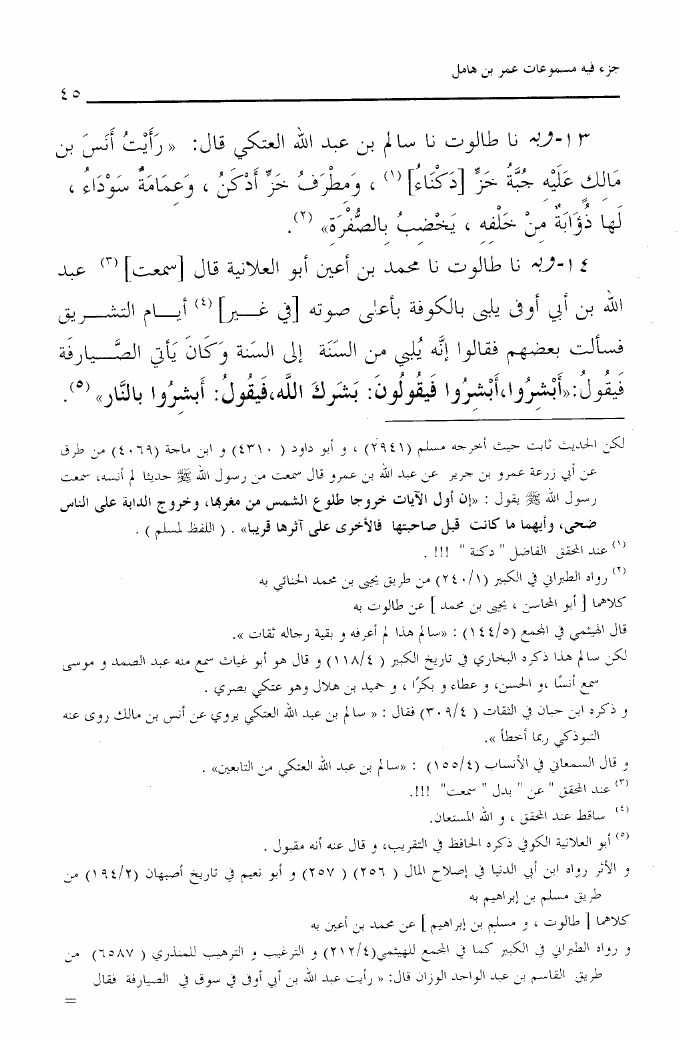 جزء فيه مسموعات عمر بن هامل
٤٥
١٣-وبه نا طالوت نا سالم بن عبد الله العتكي قال: «رَأَيْتُ أَنَسَ بن
مَالكٍ عَلَيْهِ جبَّةُ خَزٍّ [دَكْنَاءُ] (١) ، وَمطْرَفُ خَزٍّ أَدْكَنُ ، وَعمَامَةٌ سَوْدَاءُ ،
لَها ذُؤَابَةٌ منْ خَلْفِهِ ، يَخْضبُ بِالصُّفْرَة» (٢).
١٤-وبه نا طالوت نا محمد بن أعين أبو العلانية قال [سمعت] (٣) عبد
الله بن أبي أوفى يلبى بالكوفة بأعلى صوته [في غـير] (٤) أيـام التشـريق
فسألت بعضهم فقالوا إنَّه يُلبي من السنَة إلى السنَة وكَانَ يَأتي الصَّـيارفَة
فَيقُولُ:«أَبْشرُوا،أَبْشرُوا فَيقُولُونَ: بَشرَك الله،فَيقُولُ: أَبشرُوا بالنَّار» (٥).
لكن الحديث ثابت حيث أخرجه مسلم (٢٩٤١) ، و أبو داود ( ٤٣١٠) و ابن ماجة (٤٠٦٩) من طرق
عن أبي زرعة عمرو بن جرير عن عبد الله بن عمرو قال سمعت من رسول الله ﷺ حديثا لم أنسه، سمعت
رسول الله ﷺ يقول : «إن أول الآيات خروجا طلوع الشمس من مغربها، وخروج الدابة على الناس
ضحى، وأيهما ما كانت قبل صاحبتها فالأخرى على آثرها قريبا» . ( اللفظ لمسلم ) .
(١) عند المحقق الفاضل " دكنة " !!! .
(٢) رواه الطبراني في الكبير (٢٤٠/١) من طريق يحيى بن محمد الحنائي به
كلاهما [ أبو المحاسن ، يحيى بن محمد ] عن طالوت به
قال الهيثمي في المجمع (١٤٤/٥) : «سالم هذا لم أعرفه و بقية رجاله ثقات ».
لكن سالم هذا ذكره البخاري في تاريخ الكبير ( ١١٨/٤) و قال هو أبو غياث سمع منه عبد الصمد و موسى
سمع أنسًا ،و الحسن، و عطاء و بكرًا ، و حميد بن هلال وهو عتكي بصري .
و ذكره ابن حبان في الثقات ( ٣٠٩/٤) فقال : « سالم بن عبد الله العتكي يروي عن أنس بن مالك روى عنه
التبوذكي ربما أخطأ ».
و قال السمعاني في الأنساب (١٥٥/٤) : «سالم بن عبد الله العتكي من التابعين» .
(٣) عند المحقق " عن " بدل " سمعت" !!!.
(٤) ساقط عند المحقق ، و الله المستعان.
(٥) أبو العلانية الكوفي ذكره الحافظ في التقريب، و قال عنه أنه مقبول .
و الأثر رواه ابن أبي الدنيا في إصلاح المال ( ٢٥٦) ( ٢٥٧) و أبو نعيم في تاريخ أصبهان (١٩٤/٢) من
طريق مسلم بن إبراهيم به
كلاهما [ طالوت ، و مسلم بن إبراهيم ] عن محمد بن أعين به
و رواه الطبراني في الكبير كما في المجمع للهيثمي(٢١٢/٤) و الترغيب و الترهيب للمنذري ( ٦٥٨٧) من
طريق القاسم بن عبد الواحد الوزان قال: « رأيت عبد الله بن أبي أوفى في سوق في الصيارفة فقال
=